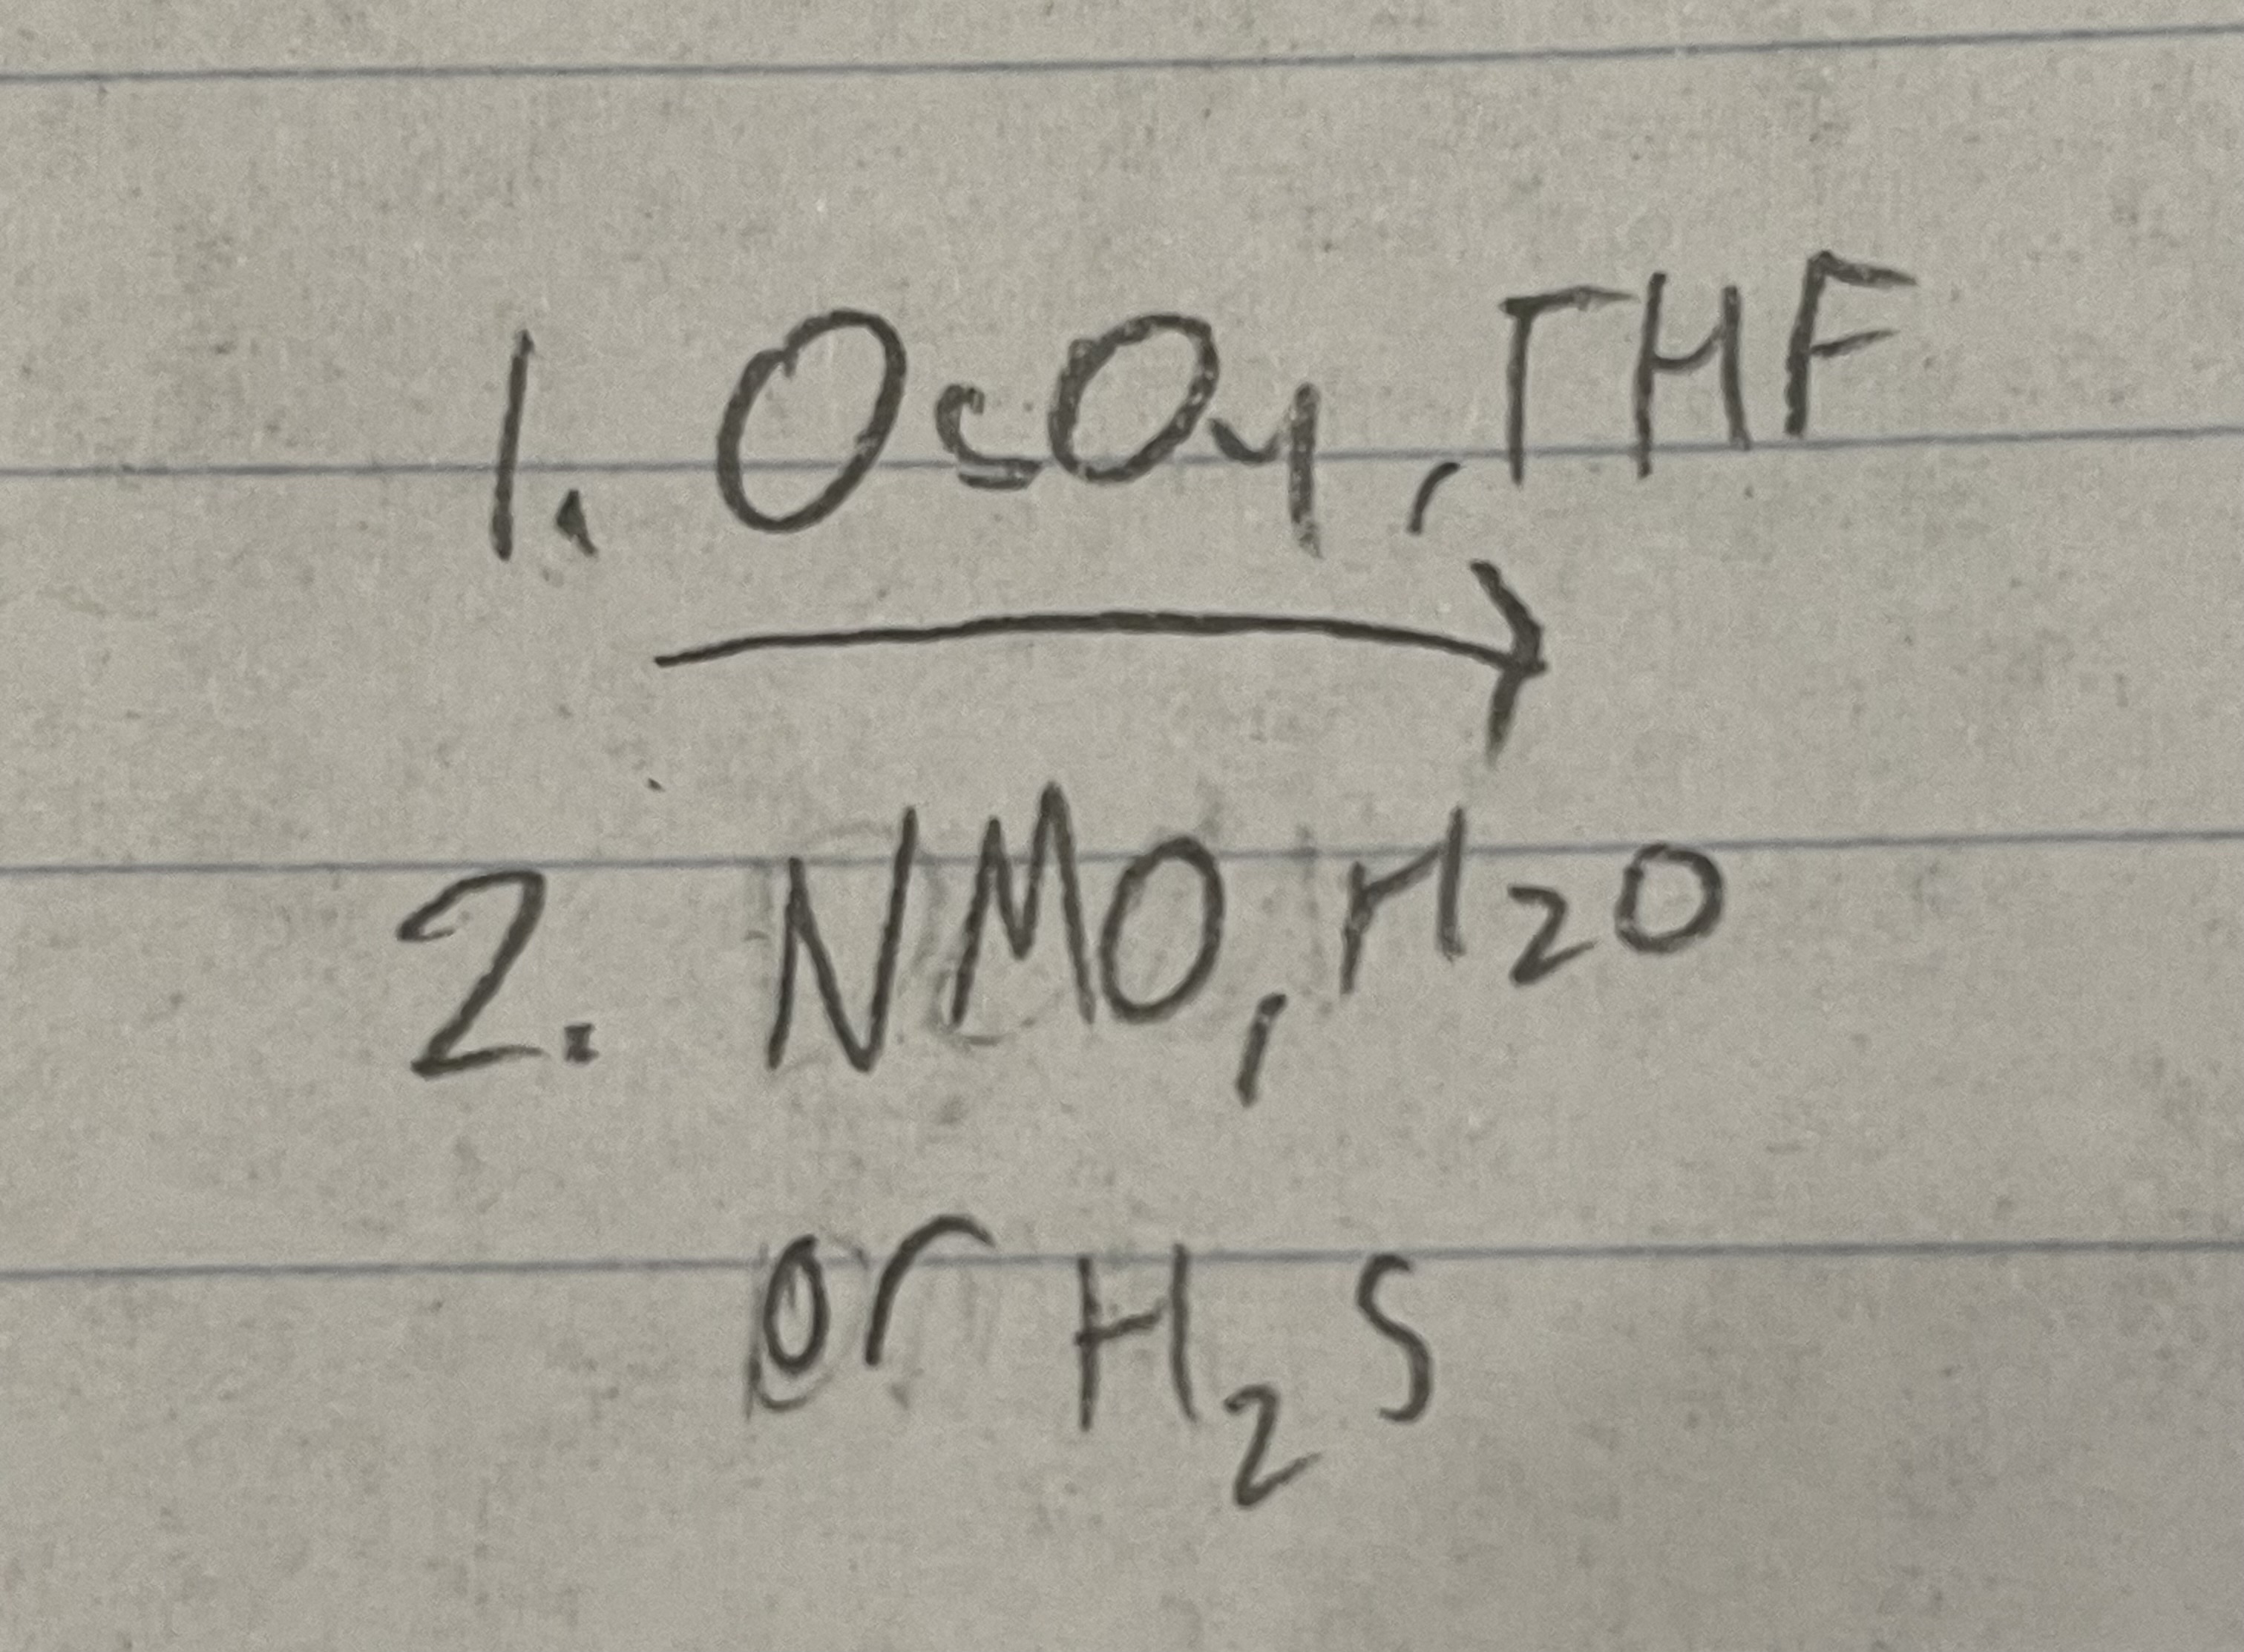 1. OsO4, THF
2. NMO, H2O
or H2S